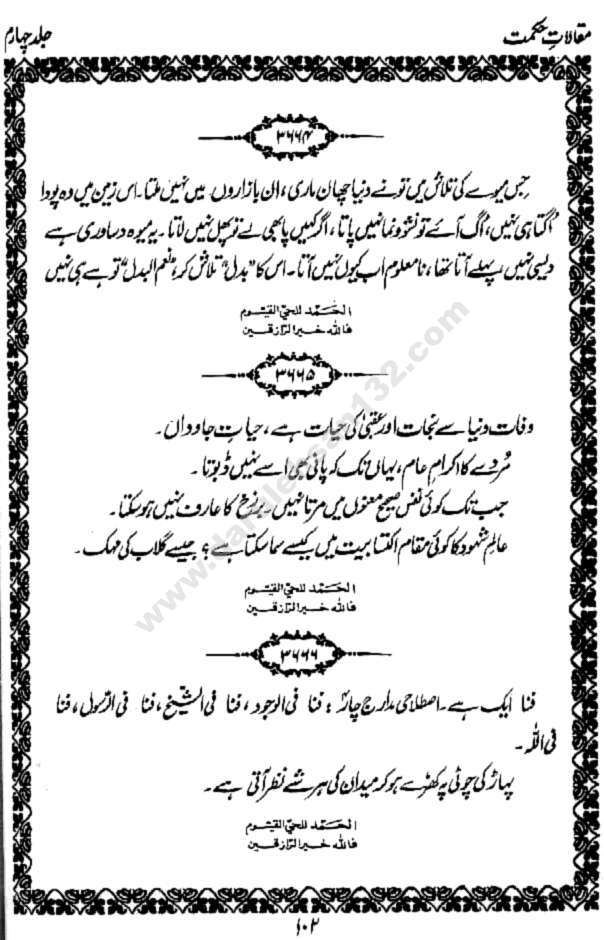 مقالاتِ حکمت
جلد چہارم
۳۶۶۴
جس میوے کی تلاش میں تو نے دنیا چھان ماری، ان بازاروں میں نہیں ملتا۔ اس زمین میں وہ پودا
اُگتا ہی نہیں، اُگ آئے تو نشوونما نہیں پاتا، اگر کہیں پا بھی لے تو پھل نہیں لاتا۔ یہ میوہ دساوری ہے
دیسی نہیں، پہلے آتا تھا، نامعلوم اب کیوں نہیں آتا۔ اس کا "بدل" تلاش کر، "نعم البدل" تو ہے ہی نہیں
الحَمد للحیّ القیّوم
فاللہ خیر الرّازقین
۳۶۶۵
وفات دنیا سے نجات اور عقبیٰ کی حیات ہے، حیاتِ جاوداں۔
مُردے کا اکرام عام، یہاں تک کہ پانی بھی اسے نہیں ڈبوتا۔
جب تک کوئی نفس صحیح معنوں میں مرتا نہیں۔ برزخ کا عارف نہیں ہو سکتا۔
عالمِ شہود کا کوئی مقام اکتسابیت میں کیسے سما سکتا ہے؟ جیسے گلاب کی مہک۔
الحَمد للحیّ القیّوم
فاللہ خیر الرّازقین
۳۶۶۶
فنا ایک ہے۔ اصطلاحی مدارج چار: فنا فی الوجود، فنا فی الشیخ، فنا فی الرّسول، فنا
فی اللہ۔
پہاڑ کی چوٹی پہ کھڑے ہو کر میدان کی ہر شئے نظر آتی ہے۔
الحَمد للحیّ القیّوم
فاللہ خیر الرّازقین
۱۰۲
www.darulehsan132.com